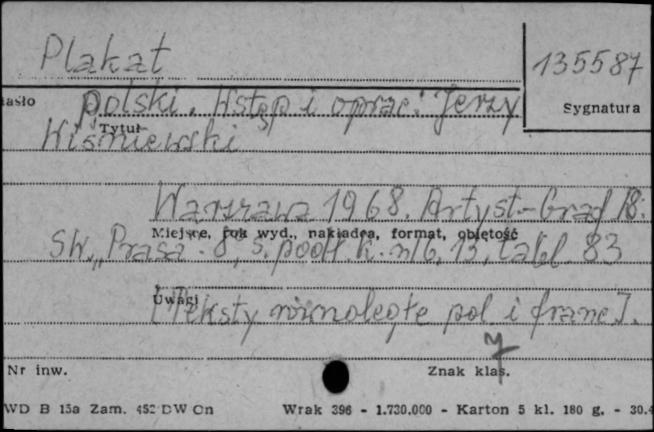 Plakat
135587
asło
polski. Wstęp i oprac. Jerzy
Sygnatura
Tytuł
Wiśniewski
Warszawa 1968. Artyst.-Graf
Miejsce, rok wyd., nakładca, format, objętość
SW. „Prasa". 8, s. podł. k. 13, tabl. 83
Uwagi
[Teksty równoległe pol i franc].
Nr inw.
Znak klas.
WD B 15a Zam. 452 DW Cn
Wrak 396 - 1.730.000 - Karton 5 kl. 180 g. - 30.4